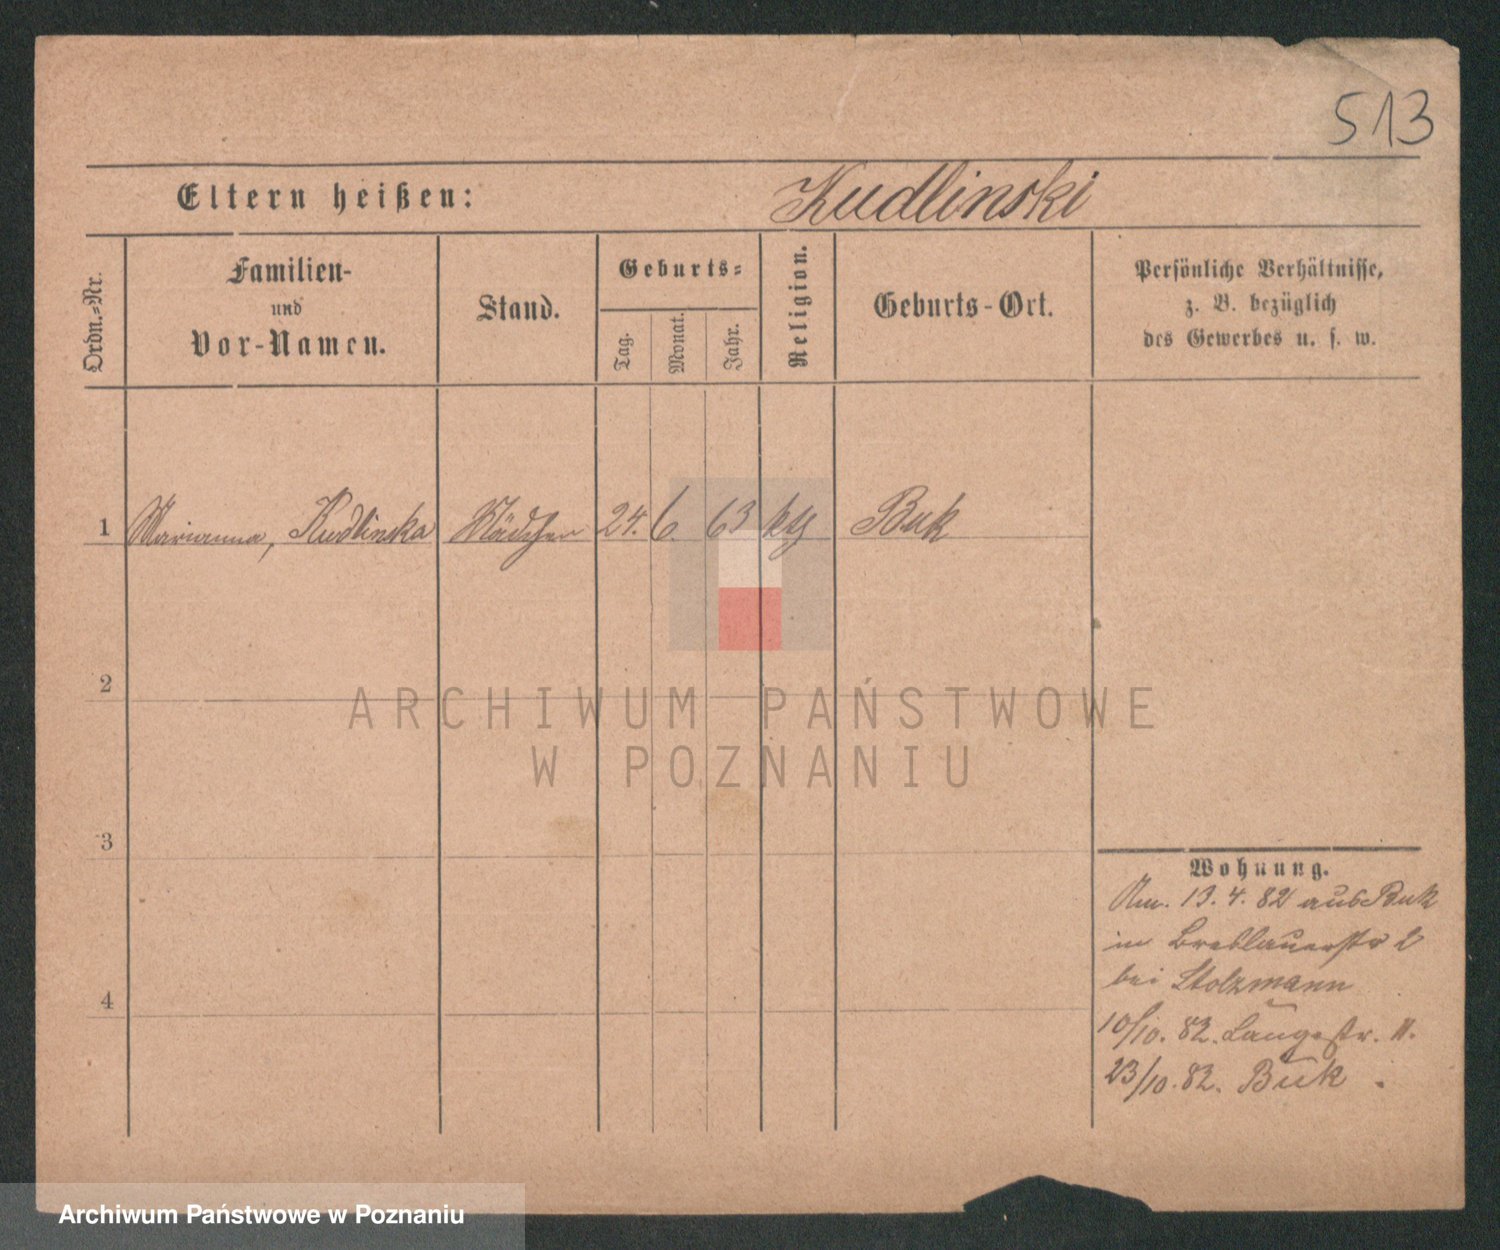 513
Eltern heißen: Kudlinski
Ordn.-Nr.
Familien-
und
Vor-Namen.
Stand.
Geburts-
Tag.
Monat.
Jahr.
Religion.
Geburts-Ort.
Persönliche Verhältnisse,
z. B. bezüglich
des Gewerbes u. s. w.
1 Marianna, Kudlinska Mädchen 24. 6. 63 kth Buk
2
3
4
Wohnung.
Am. 13. 4. 82 aus Buk
in Breslauerstr 2
bei Stolzmann
10/10. 82. Langestr. 11.
23/10. 82. Buk.
ARCHIWUM PAŃSTWOWE
W POZNANIU
Archiwum Państwowe w Poznaniu